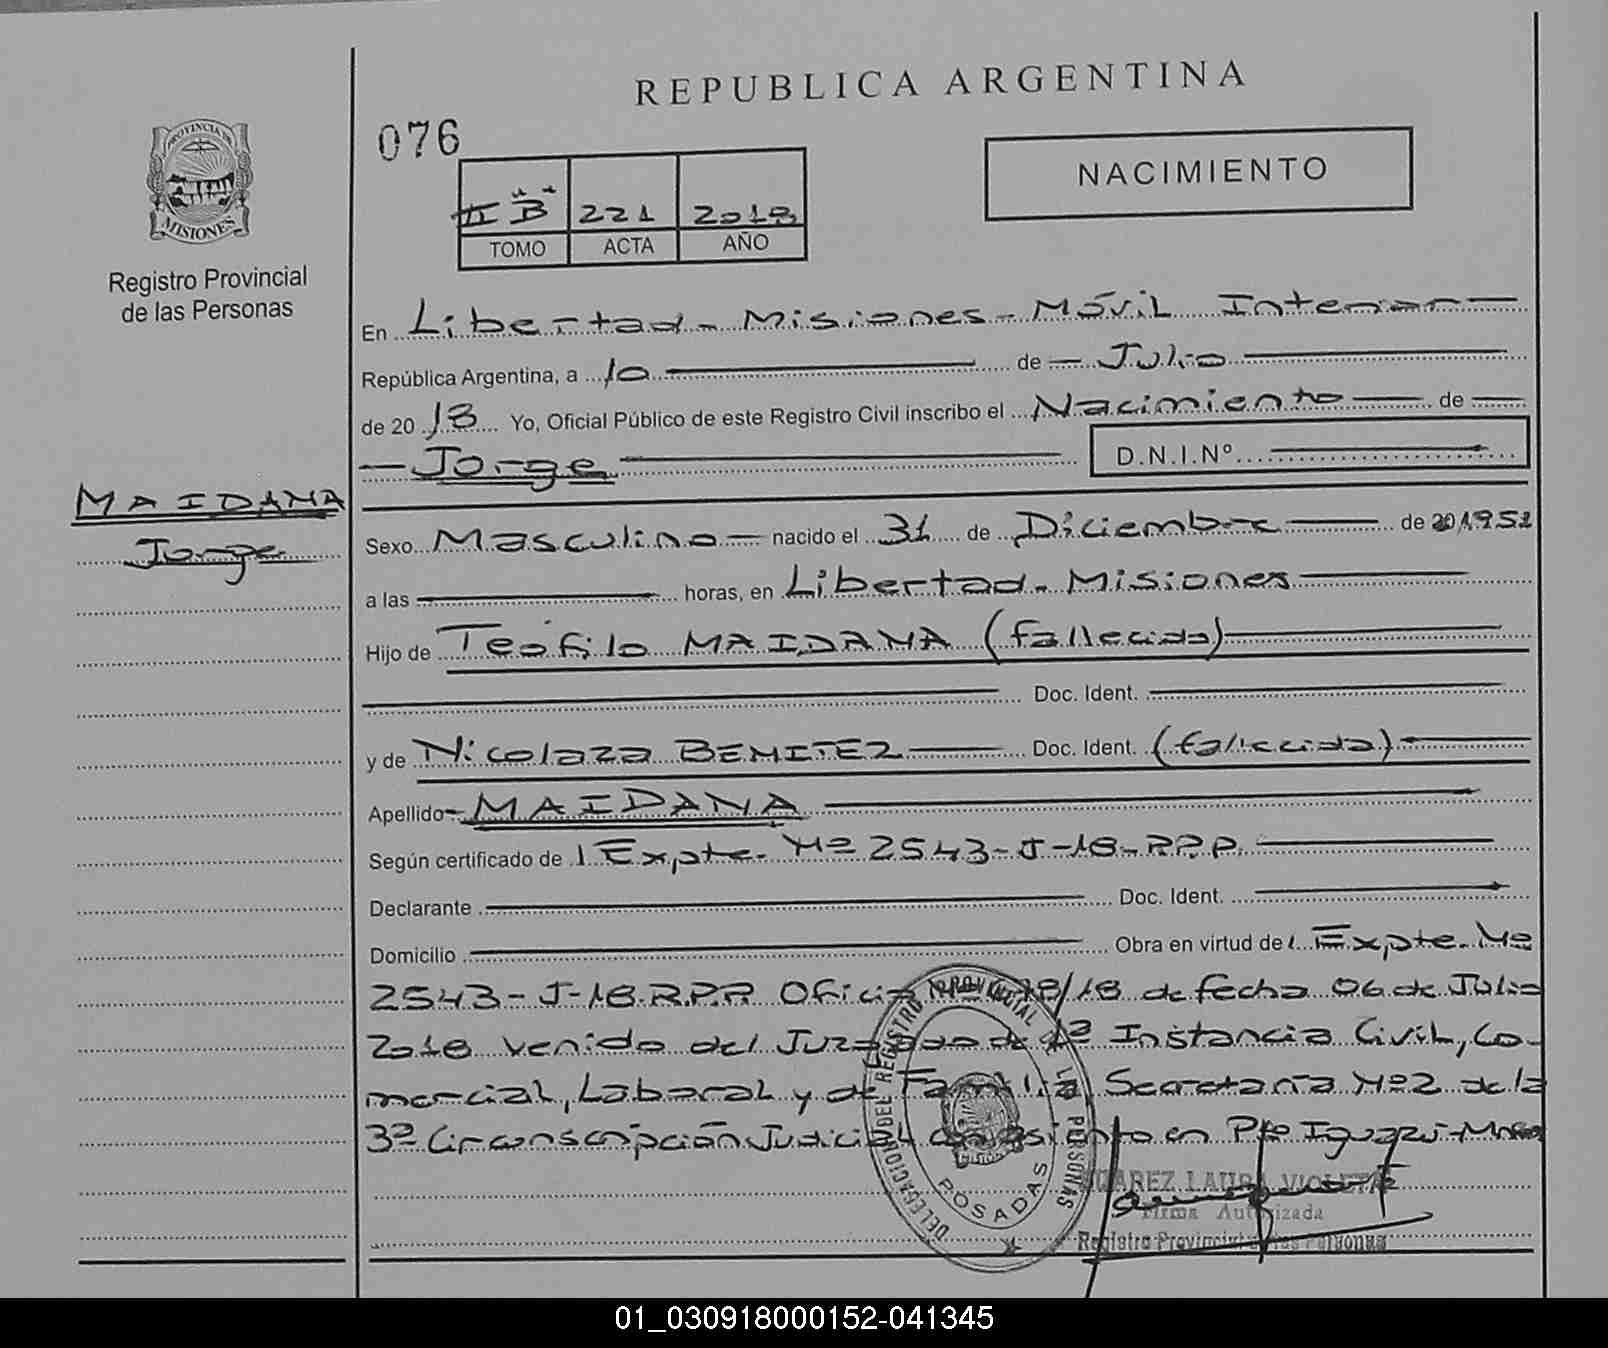 REPUBLICA ARGENTINA
076
NACIMIENTO
II "B" 221 2018
TOMO ACTA AÑO
PROVINCIA DE
MISIONES
Registro Provincial
de las Personas
En Libertad - Misiones - Móvil Interior
República Argentina, a 10 de Julio
de 20 18 Yo, Oficial Público de este Registro Civil inscribo el Nacimiento de
Jorge D.N.I.Nº
MAIDANA
Jorge
Sexo Masculino nacido el 31 de Diciembre de 1952
a las horas, en Libertad - Misiones
Hijo de Teófilo MAIDANA (fallecido)
Doc. Ident.
y de Nicolaza BENITEZ Doc. Ident. (fallecida)
Apellido MAIDANA
Según certificado de Expte. Nº 2543-J-18-R.P.P.
Declarante Doc. Ident.
Domicilio Obra en virtud de Expte. Nº
2543-J-18-R.P.P. Oficio /18 de fecha 06 de Julio
2018 venido del Juzgado de 1ª Instancia Civil, Co-
mercial, Laboral y de Familia Secretaría Nº2 de la
3ª Circunscripción Judicial con asiento en Pto Iguazú-Mnes
DELEGACION DEL REGISTRO PROVINCIAL DE LAS PERSONAS
POSADAS
SUAREZ LAURA VIOLETA
Firma Autorizada
Registro Provincial de las Personas
01_030918000152-041345